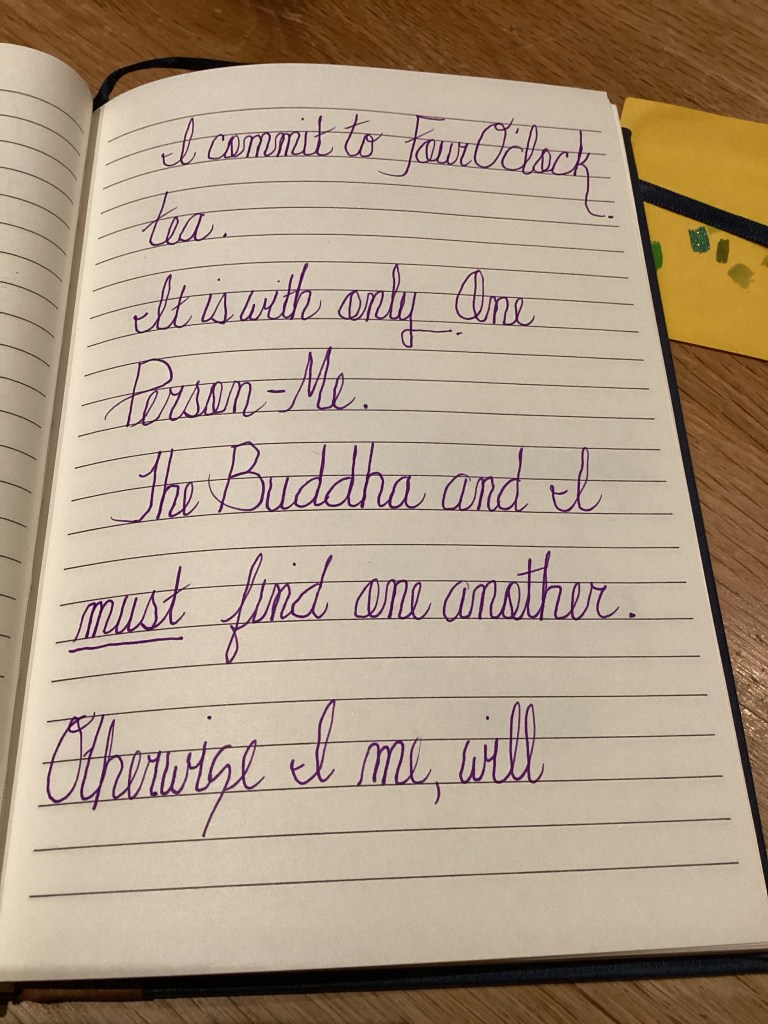 I commit to Four O'clock
tea.
It is with only One
Person-Me.
The Buddha and I
must find one another.
Otherwise I me, will